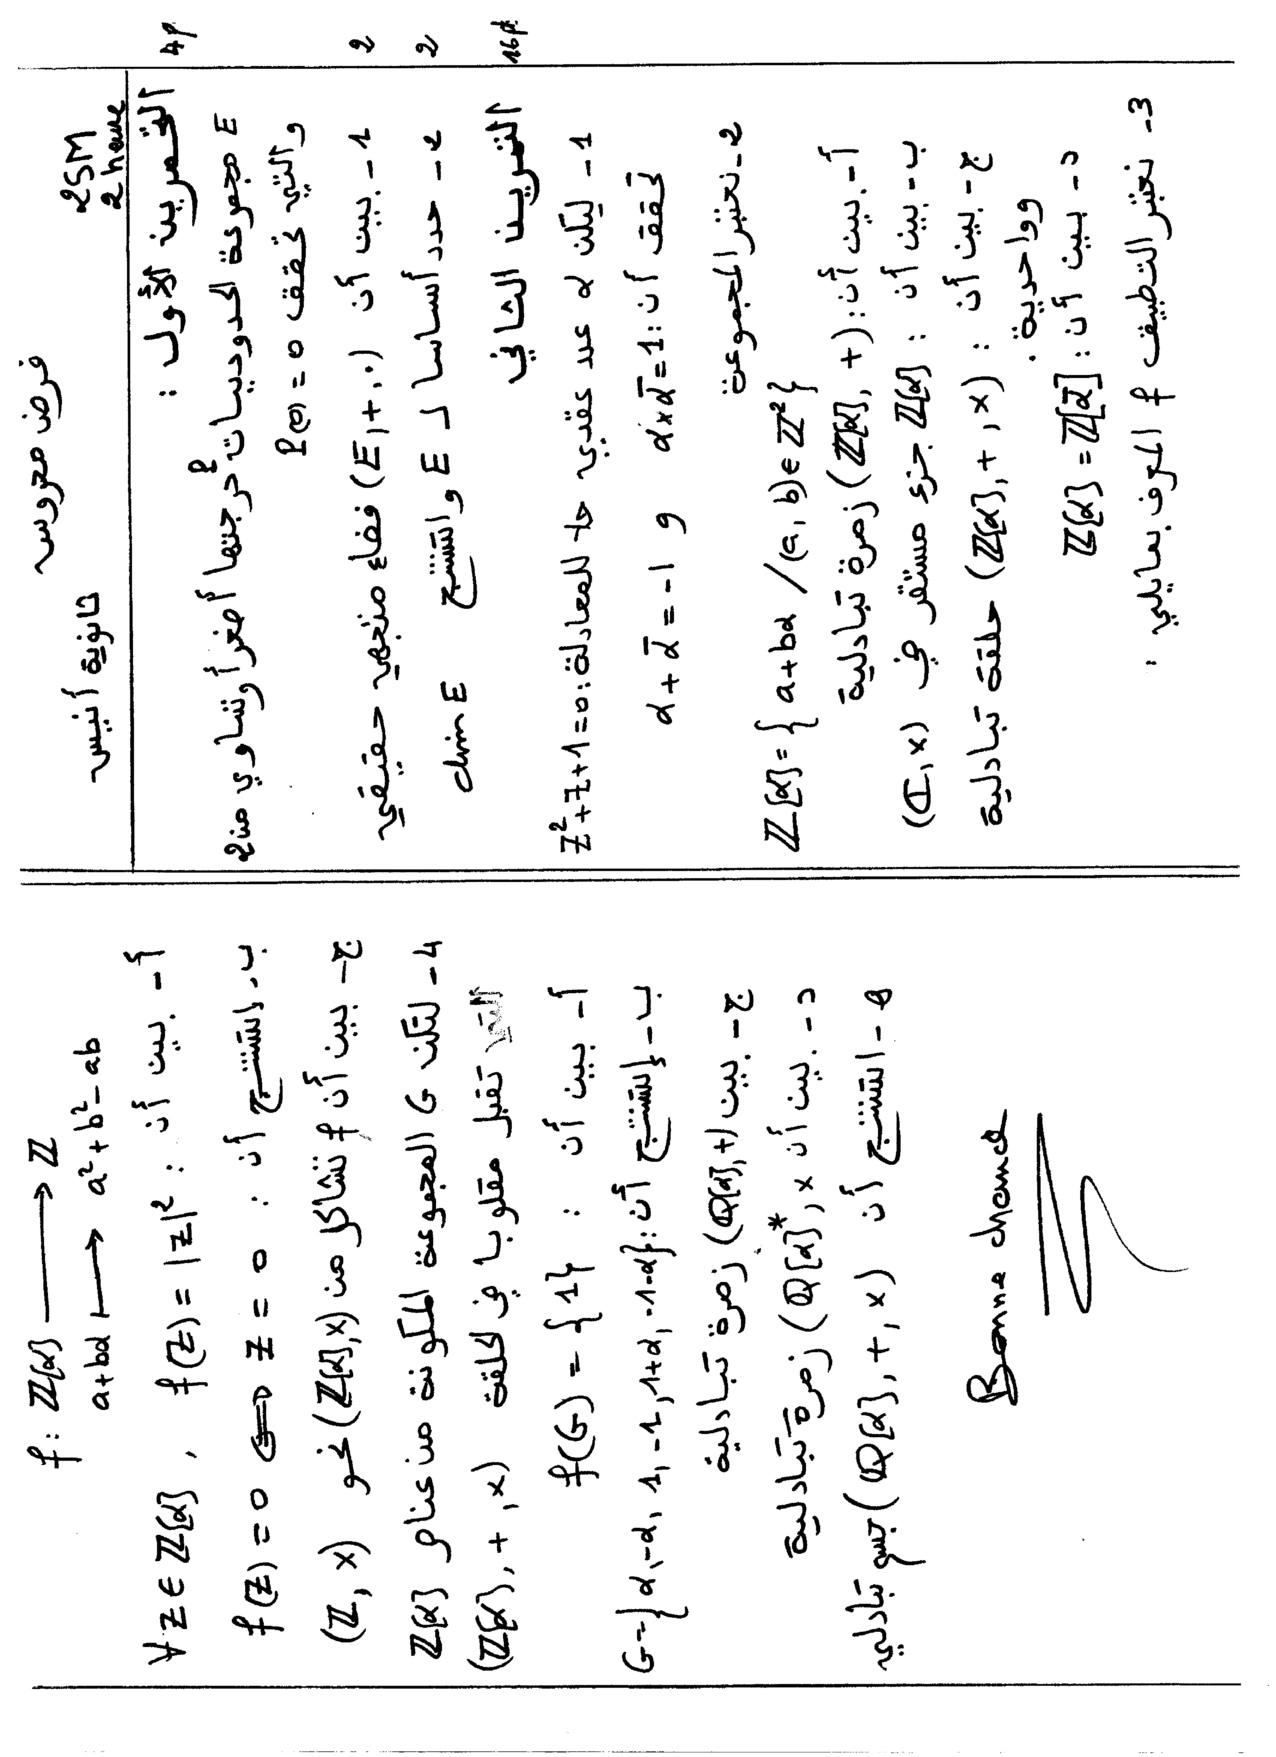 فرض محروس
ثانوية أنيس
2SM
2 heure
التمرين الأول : 4p
E مجموعة الحدوديات P درجتها أصغر أو تساوي من 2
والتي تحقق P(0) = 0
1 - بين أن (E,+,.) فضاء متجهي حقيقي 2
2 - حدد أساسا لـ E واستنتج dim E 2
التمرين الثاني 16p
1 - ليكن α عدد عقدي حل للمعادلة: z²+z+1=0
تحقق أن: α×ᾱ=1 و α+ᾱ=-1
2 - نعتبر المجموعة
ℤ[α]={a+bα /(a,b)∈ℤ²}
أ - بين أن: (ℤ[α],+) زمرة تبادلية
ب - بين أن : ℤ[α] جزء مستقر في (ℂ,×)
ج - بين أن : (ℤ[α],+,×) حلقة تبادلية
وواحدية.
د - بين أن : ℤ[α]=ℤ[ᾱ]
3 - نعتبر التطبيق f المعرف بمايلي :
f: ℤ[α] ⟶ ℤ
a+bα ⟼ a²+b²-ab
أ - بين أن : ∀z∈ℤ[α] , f(z)=|z|²
ب - استنتج أن : f(z)=0 ⟺ z=0
ج - بين أن f تشاكل من (ℤ[α],×) نحو (ℤ,×)
4 - لتكن G المجموعة المكونة من عناصر ℤ[α]
التي تقبل مقلوبا في الحلقة (ℤ[α],+,×)
أ - بين أن : f(G)={1}
ب - إستنتج أن : G={α,-α,1,-1,1+α,-1-α}
ج - بين (ℚ[α],+) زمرة تبادلية
د - بين أن (ℚ[α]*,× زمرة تبادلية
ه - استنتج أن (ℚ[α],+,×) جسم تبادلي
Bonne chance